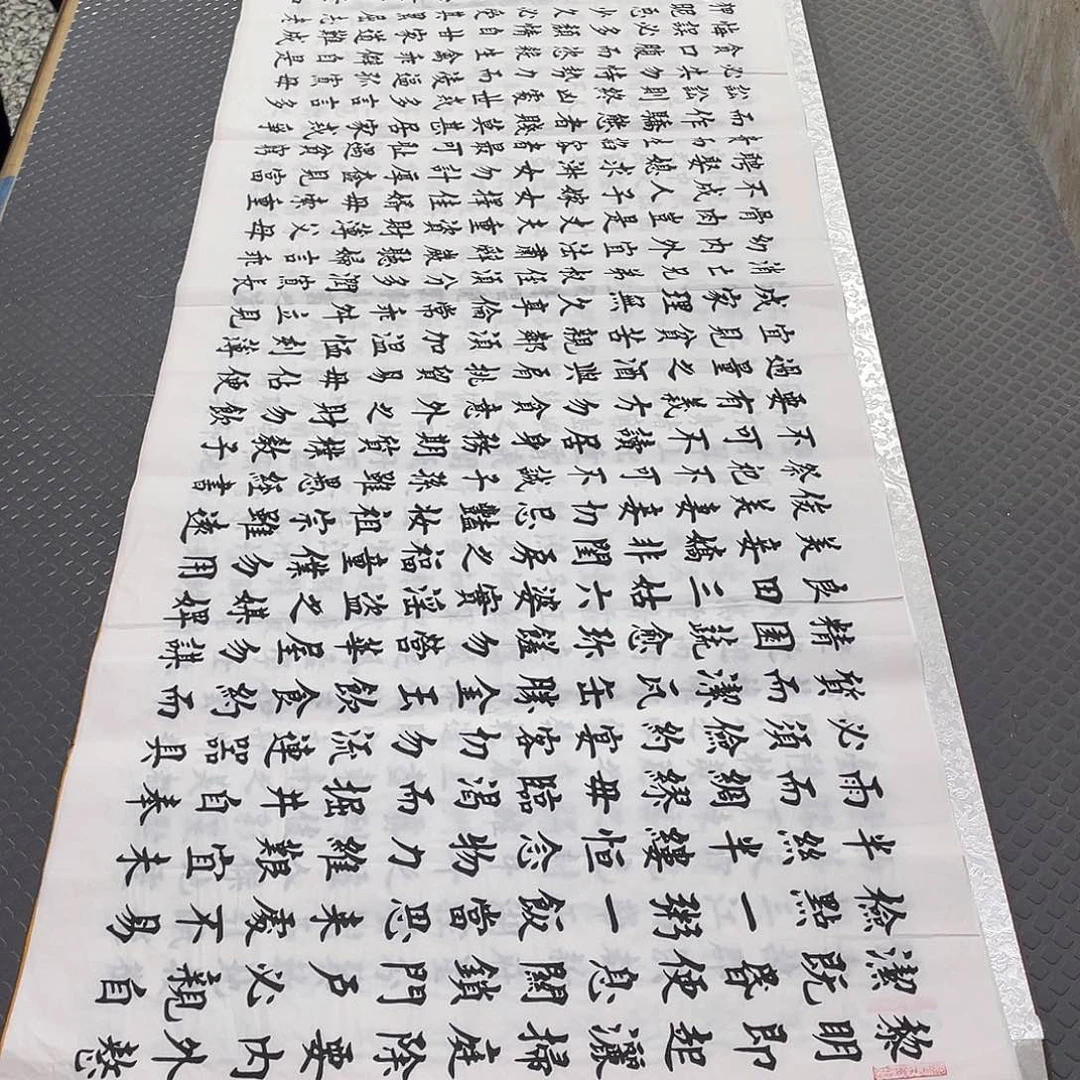 黎明即起灑掃庭除要內外整
潔既昏便息關鎖門戶必親自
檢點一粥一飯當思來處不易
半絲半縷恒念物力維艱宜未
雨而綢繆毋臨渴而掘井自奉
必須儉約宴客切勿流連器具
質而潔瓦缶勝金玉飲食約而
精園蔬愈珍饈勿營華屋勿謀
良田三姑六婆實淫盜之媒婢
美妾嬌非閨房之福童僕勿用
俊美妻妾切忌豔妝祖宗雖遠
祭祀不可不誠子孫雖愚經書
不可不讀居身務期質樸教子
要有義方勿貪意外之財勿飲
過量之酒與肩挑貿易毋佔便
宜見貧苦親鄰須加溫恤刻薄
成家理無久享倫常乖舛立見
消亡兄弟叔侄須分多潤寡長
幼內外宜法肅辭嚴聽婦言乖
骨肉豈是丈夫重資財薄父母
不成人子嫁女擇佳婿毋索重
聘娶媳求淑女勿計厚奩見富
而生諂容者最可恥遇貧
而作驕態者賤莫甚居家戒爭
訟訟則終凶處世戒多言言多
必失勿恃勢力而凌逼孤寡毋
貪口腹而恣殺生禽乖僻自是
悔誤必多頹惰自甘家道難成
狎昵惡少久必受其累屈